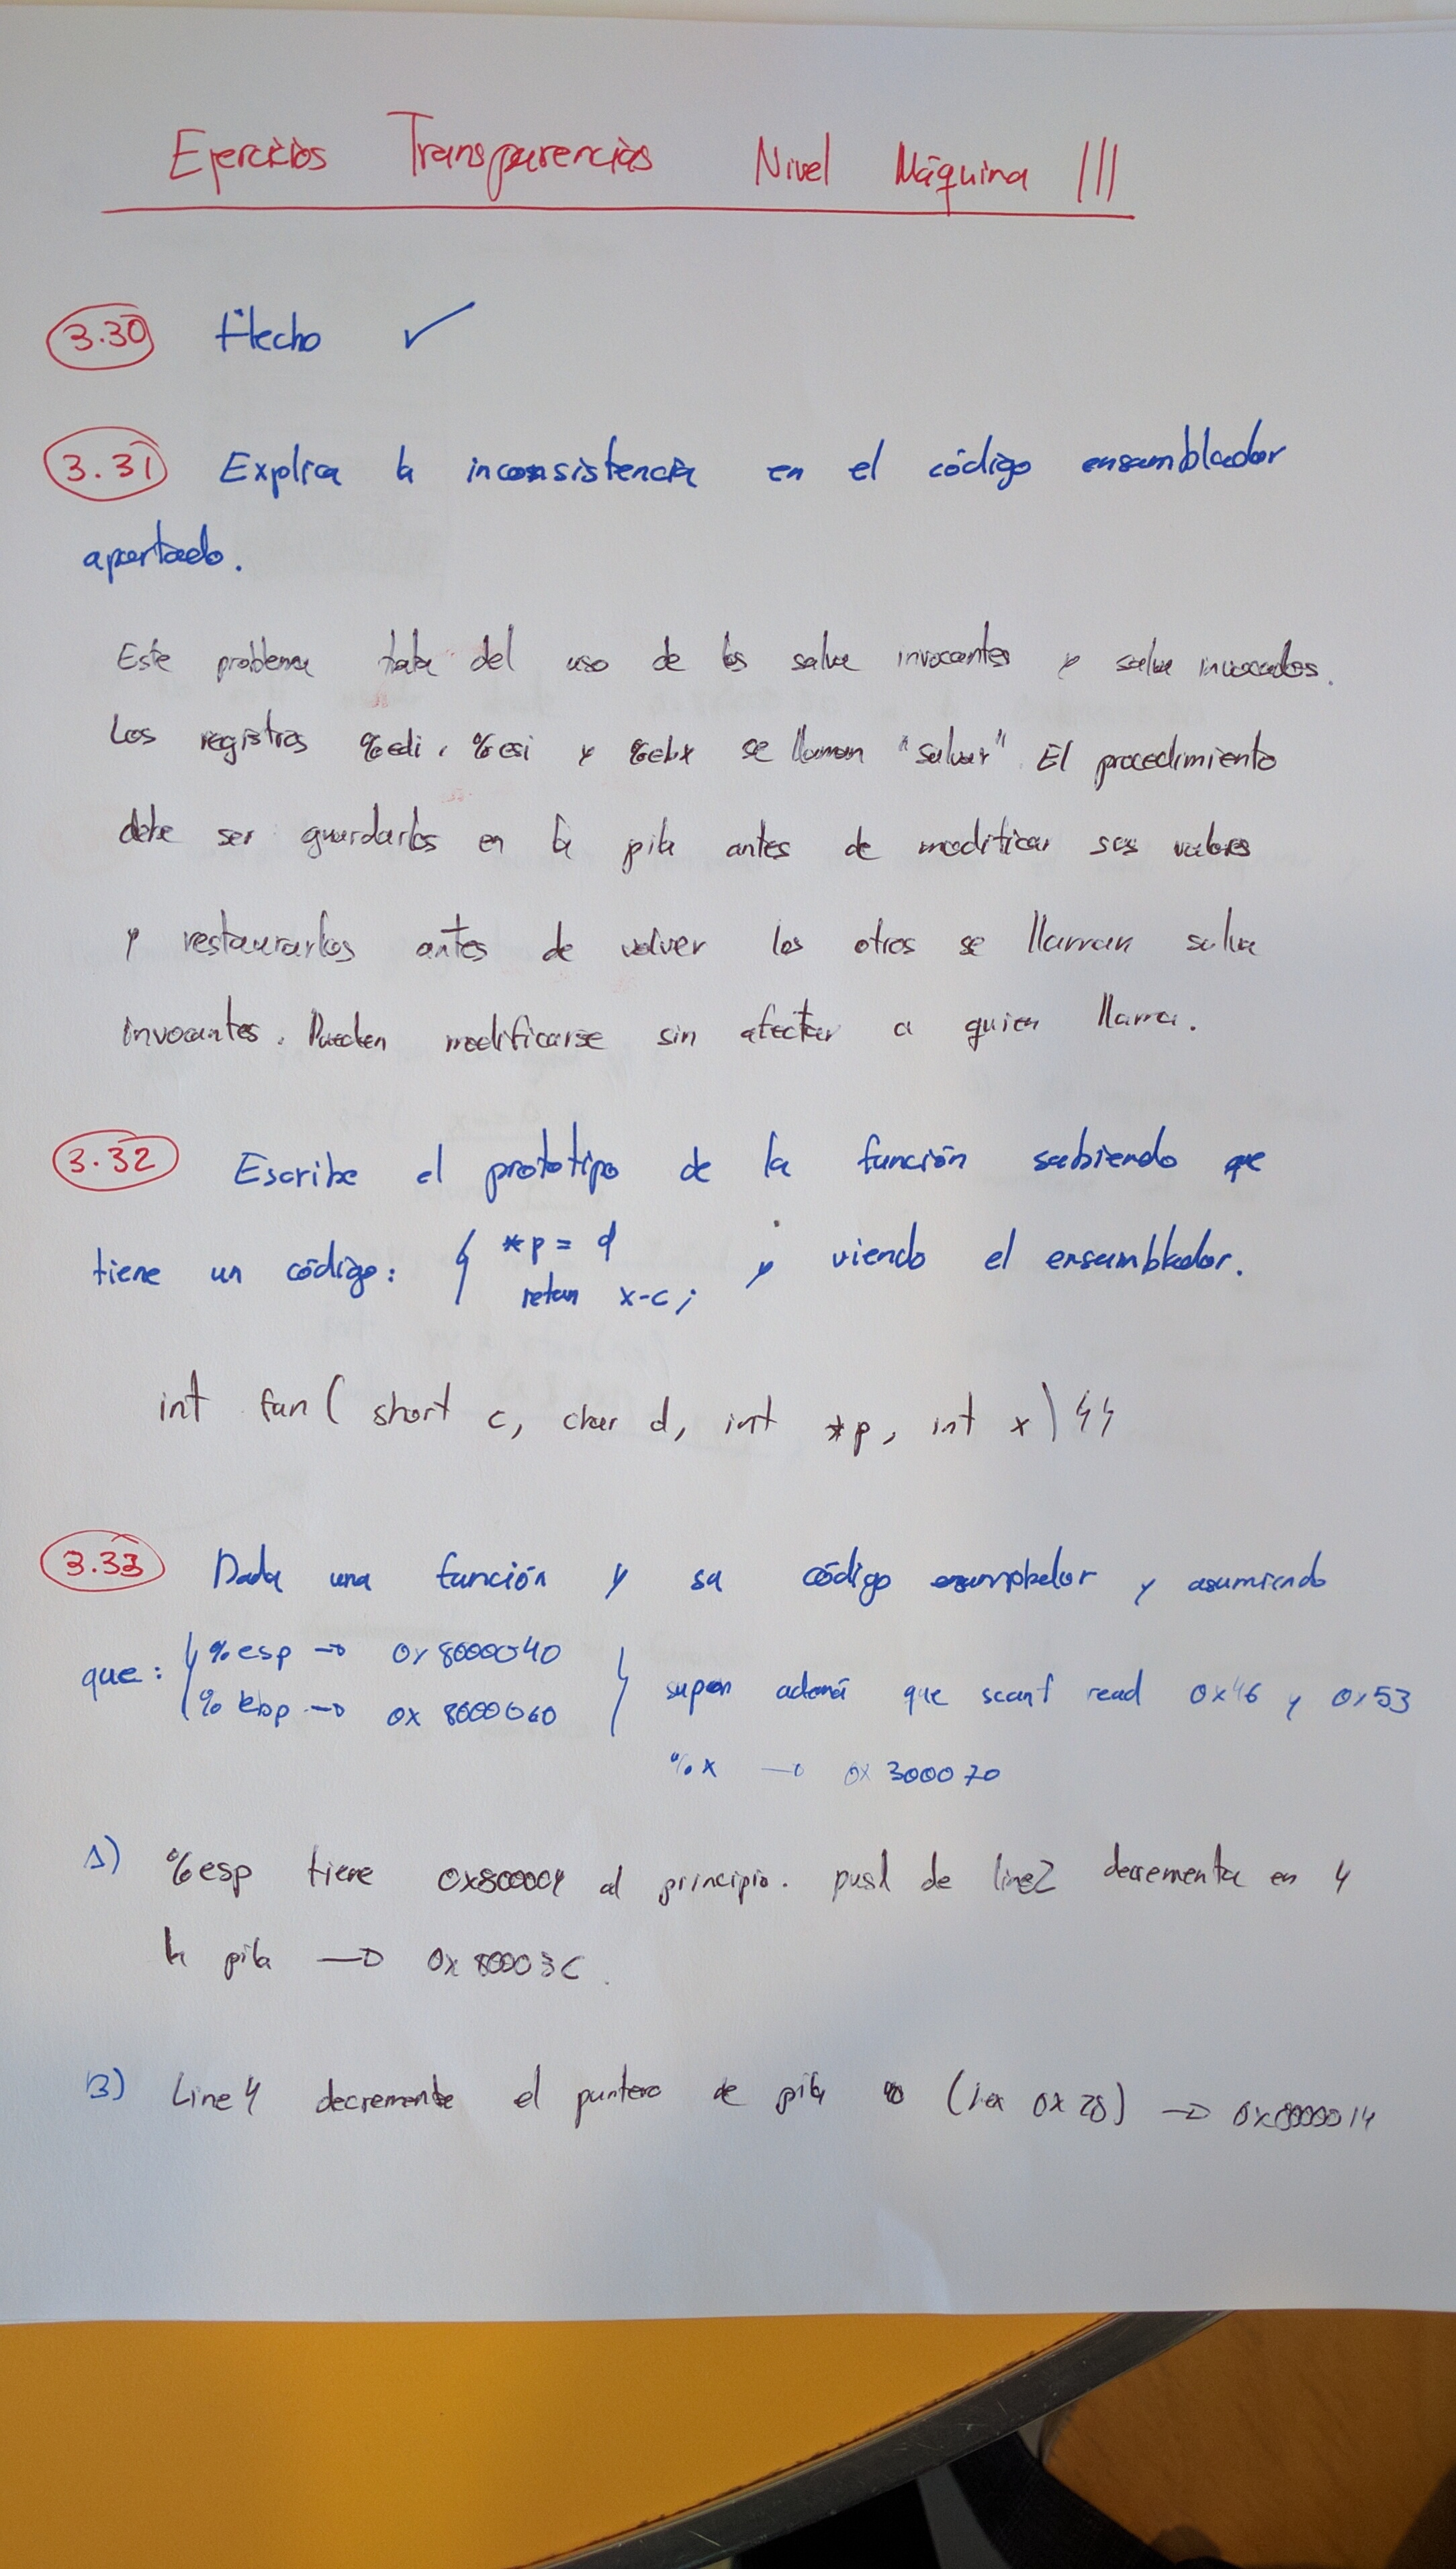 Ejercicios Transparencias Nivel Máquina III
3.30 Hecho ✓
3.31 Explica la inconsistencia en el código ensamblador
apartado.
Este problema trata del uso de los salva invocantes y salva invocados.
Los registros %edi, %esi y %ebx se llaman "salvar". El procedimiento
debe ser guardarlos en la pila antes de modificar sus valores
y restaurarlos antes de volver los otros se llaman salva
invocantes. Pueden modificarse sin afectar a quien llama.
3.32 Escribe el prototipo de la función sabiendo que
tiene un código: { *p = d
return x-c; y viendo el ensamblador.
int fun( short c, char d, int *p, int x) {}
3.33 Dada una función y su código y asumiendo
que: { %esp → 0x8000040
%ebp → 0x8000060 } supon ademá que scanf read 0x46 y 0x53
%x → 0x300070
A) %esp tiene 0x800004 al principio. pusl de line2 decrementa en 4
la pila → 0x80003C.
B) Line 4 decrementa el puntero de pila (en 0x28) → 0x8000014